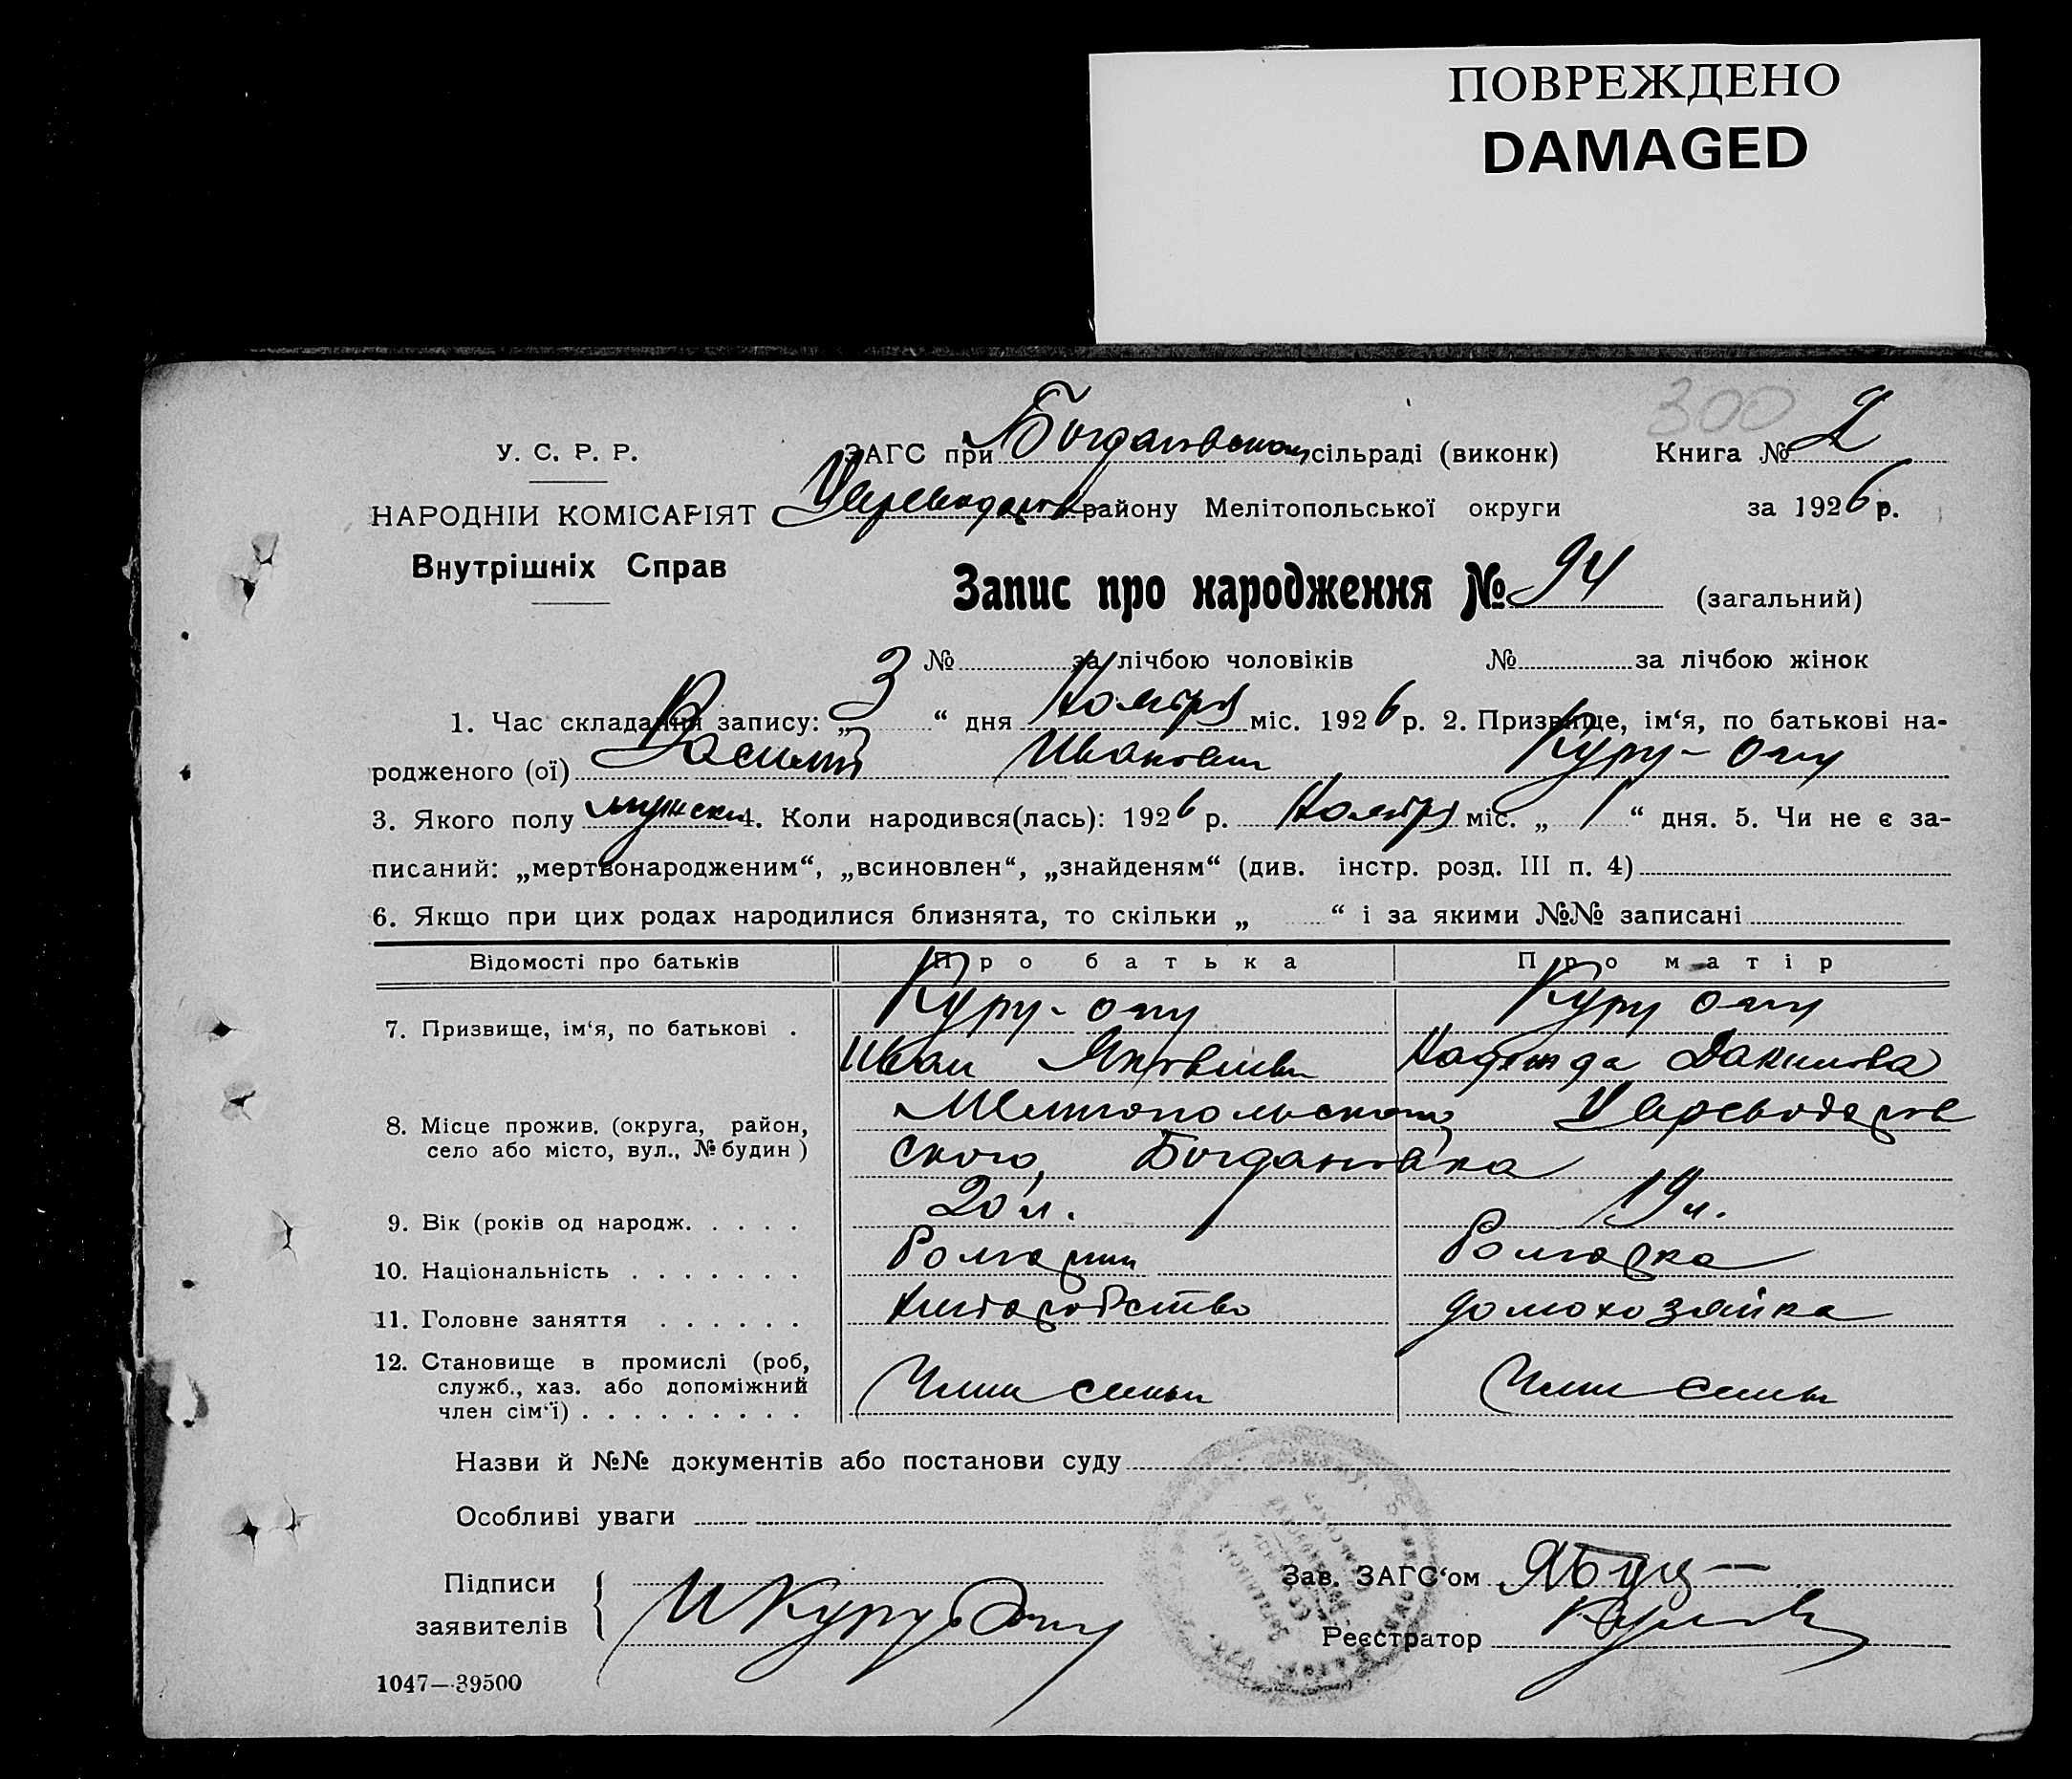 ПОВРЕЖДЕНО
DAMAGED
300
У. С. Р. Р. ЗАГС при Богдановском сільраді (виконк) Книга № 2
НАРОДНІЙ КОМІСАРІЯТ району Мелітопольської округи за 1926 р.
Внутрішніх Справ
Запис про народження № 94 (загальний)
№ за лічбою чоловіків № за лічбою жінок
1. Час складання запису: „ 3 “ дня Ноября міс. 1926 р. 2. Призвище, ім‘я, по батькові на-
родженого (ої) Василий Иванович Куру-оглу
3. Якого полу мужски 4. Коли народився(лась): 1926 р. Ноября міс. „ 1 “ дня. 5. Чи не є за-
писаний: „мертвонародженим“, „всиновлен“, „знайденям“ (див. інстр. розд. III п. 4)
6. Якщо при цих родах народилися близнята, то скільки „ “ і за якими №№ записані
Відомості про батьків Про батька Про матір
7. Призвище, ім‘я, по батькові . Куру-оглу Куру оглу
Иван Яковлевич Надежда Данилова
8. Місце прожив. (округа, район, село або місто, вул., № будин ) Мелитопольского,
ского, Богдановка
9. Вік (років од народж. . . . . 20 л. 19 л.
10. Національність . . . . . . . Болгарин Болгарка
11. Головне заняття . . . . . . хлеборобство домохозяйка
12. Становище в промислі (роб, служб., хаз. або допоміжний член сім‘ї) . . . . . . . . . Член семьи Член семьи
Назви й №№ документів або постанови суду
Особливі уваги
Підписи заявителів И Куру-Оглу
Зав. ЗАГС‘ом
Реєстратор
1047—39500